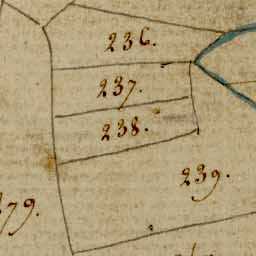 236.
237.
238.
239.
79.